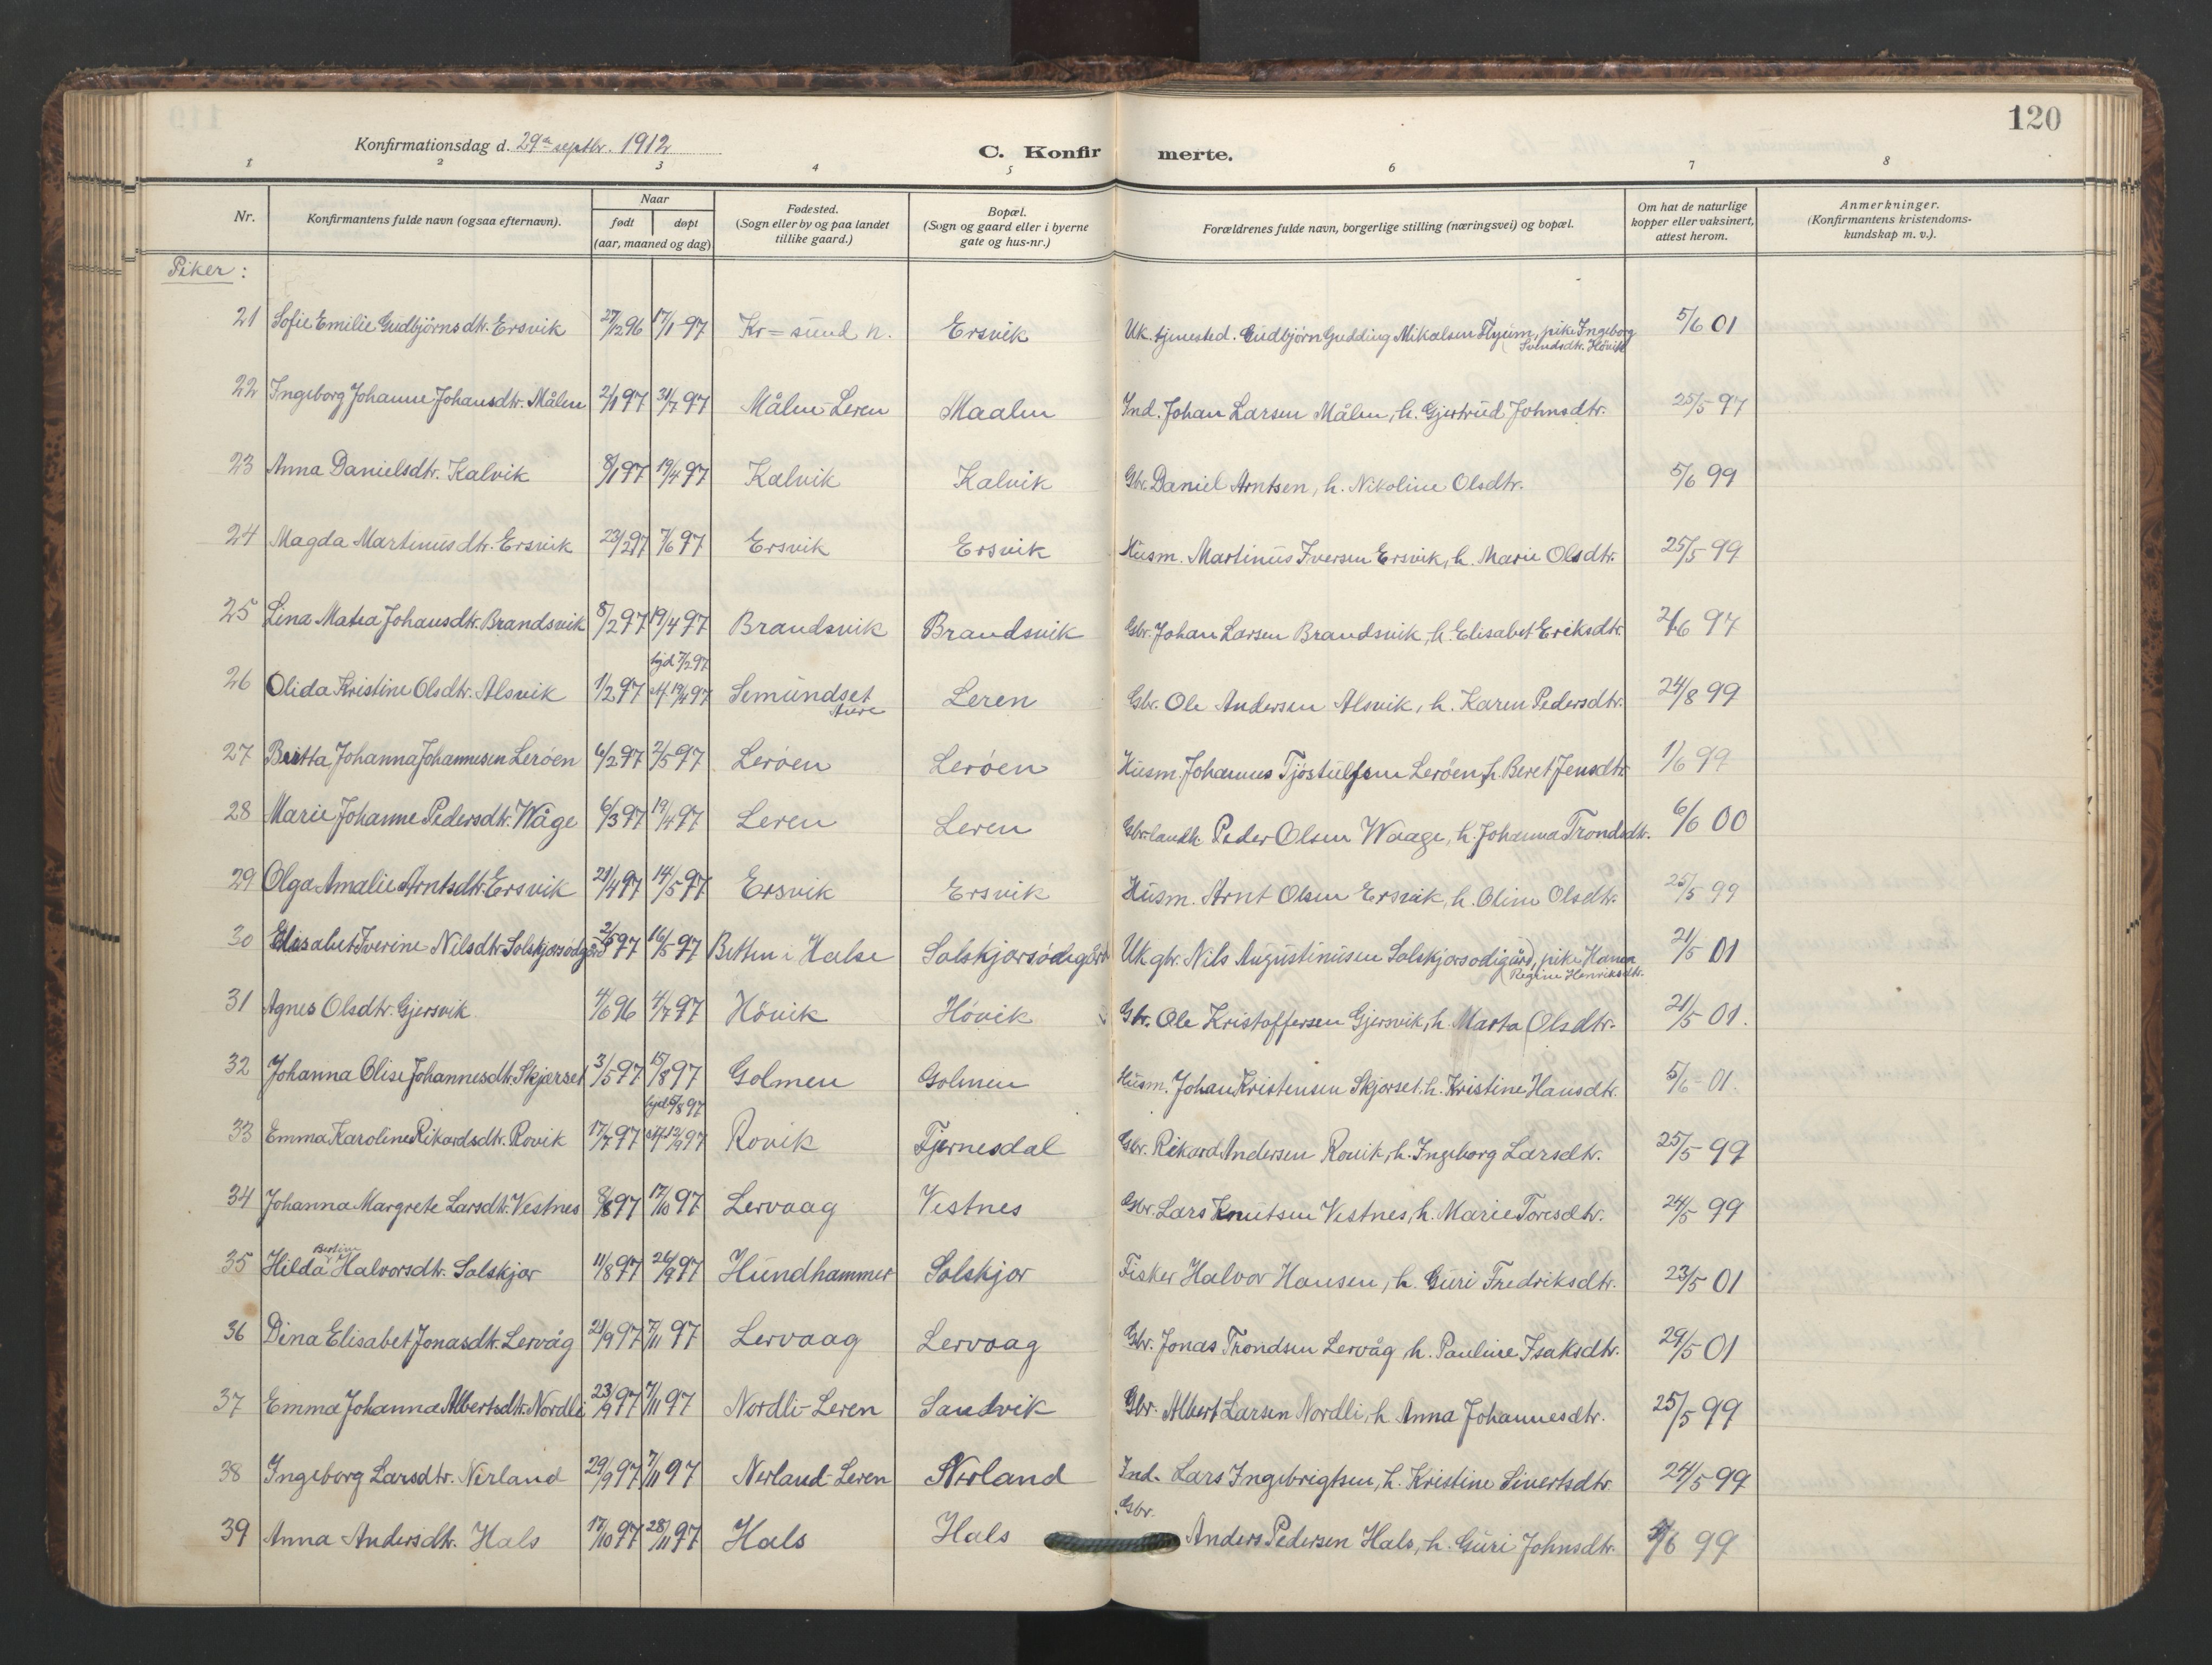 120
Konfirmationsdag d. 29de septbr. 1912
C. Konfirmerte.
1 2 3 4 5 6 7 8
Nr. Konfirmantens fulde navn (ogsaa efternavn). Naar født døpt (aar, maaned og dag) Fødested. (Sogn eller by og paa landet tillike gaard.) Bopæl. (Sogn og gaard eller i byerne gate og hus-nr.) Forældrenes fulde navn, borgerlige stilling (næringsvei) og bopæl. Om hat de naturlige kopper eller vaksinert, attest herom. Anmerkninger. (Konfirmantens kristendomskundskap m. v.).
Piker:
21 Sofie Emilie Gudbjörnsdtr. Ersvik 27/12 96 17/1 97 Kr=sund n. Ersvik Uk. tjenested. Gudbjörn Gudding Mikalsen Flyum, pike Ingeborg Svendsdtr. Hövik 5/6 01
22 Ingeborg Johanne Johansdtr. Målen 2/1 97 31/7 97 Målen-Leren Maalen Ind. Johan Larsen Målen, h. Gjertrud Johnsdtr. 25/5 97
23 Anna Danielsdtr. Kalvik 8/1 97 19/4 97 Kalvik Kalvik Gbr. Daniel Arntsen, h. Nikoline Olsdtr. 5/6 99
24 Magda Martinusdtr. Ersvik 23/2 97 7/6 97 Ersvik Ersvik Husm. Martinus Iversen Ersvik, h. Marie Olsdtr. 25/5 99
25 Lina Matea Johansdtr. Brandsvik 8/2 97 19/4 97 Brandsvik Brandsvik Gbr. Johan Larsen Brandsvik, h. Elisabet Eriksdtr. 2/6 97
26 Olida Kristine Olsdtr. Alsvik 1/2 97 hjd 7/2 97 st. 19/4 97 Semundset Aure Leren Gbr. Ole Andersen Alsvik, h. Karen Pedersdtr. 24/8 99
27 Beritta Johanna Johannesen Leröen 6/2 97 2/5 97 Leröen Leröen Husm. Johannes Tjöstulfsen Leröen, h. Beret Jensdtr 1/6 99
28 Marie Johanne Pedersdtr. Wåge 6/3 97 19/4 97 Leren Leren Gbr. landh. Peder Olsen Waage, h. Johanna Trondsdtr. 6/6 00
29 Olga Amalie Arntsdtr. Ersvik 21/4 97 14/5 97 Ersvik Ersvik Husm. Arnt Olsen Ersvik, h. Oline Olsdtr. 25/5 99
30 Elisabet Iverine Nilsdtr. Solskjørsødegård 2/5 97 16/5 97 Betten i Halse Solskjørsødegård Uk. gbr. Nils Augustinusen Solskjørsødegård, pike Hanna Regine Henriksdtr. 21/5 01
31 Agnes Olsdtr. Gjersvik 4/6 96 4/7 97 Hövik Hövik Gbr. Ole Kristoffersen Gjersvik, h. Marta Olsdtr. 21/5 01.
32 Johanna Olise Johannesdtr. Skjørset 3/5 97 15/8 97 Golmen Golmen Husm. Johan Kristensen Skjørset, h. Kristine Hansdtr. 5/6 01.
33 Emma Karoline Rikardsdtr. Rovik 17/7 97 st. 12/9 97 Rovik Tjernesdal Gbr. Rikard Andersen Rovik, h. Ingeborg Larsdtr. 25/5 99
34 Johanna Margrete Larsdtr. Vestnes 8/8 97 17/10 97 Lervaag Vestnes Gbr. Lars Knutsen Vestnes, h. Marie Toresdtr. 24/5 99
35 Hilda Bertine Halvorsdtr. Solskjør 11/8 97 26/9 97 Hundhammer Solskjør Fisker Halvor Hansen, h. Guri Fredriksdtr. 23/5 01
36 Dina Elisabet Jonasdtr. Lervåg 21/9 97 7/11 97 Lervaag Lervaag Gbr. Jonas Trondsen Lervåg, h. Pauline Isaksdtr. 29/5 01
37 Emma Johanna Albertsdtr. Nordli 23/9 97 7/11 97 Nordli-Leren Sandvik Gbr. Albert Larsen Nordli, h. Anna Johannesdtr. 25/5 99
38 Ingeborg Larsdtr. Nerland 29/9 97 7/11 97 Nerland-Leren Nerland Ind. Lars Ingebrigtsen, h. Kristine Sivertsdtr. 24/5 99
39 Anna Andersdtr. Hals 17/10 97 28/11 97 Hals Hals Gbr. Anders Pedersen Hals, h. Guri Johnsdtr. 5/6 99